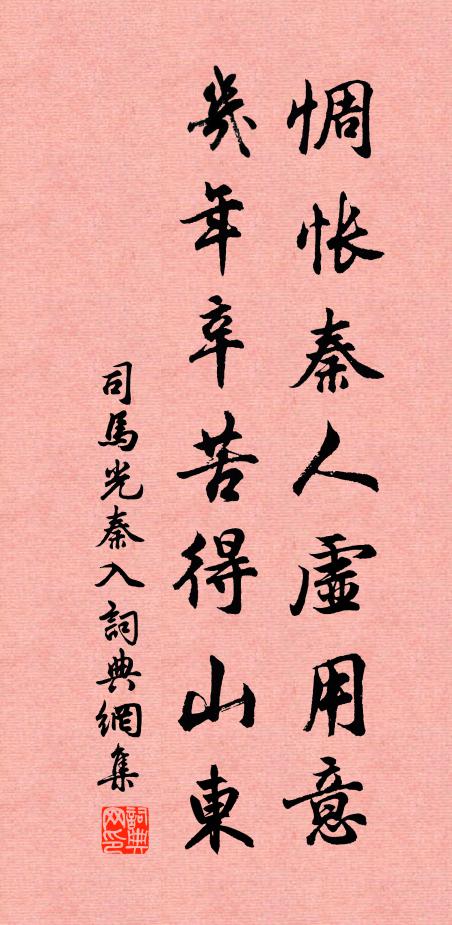 惆悵秦人虛用意
幾年辛苦得山東
司馬光秦人詞典網集
詞典网印